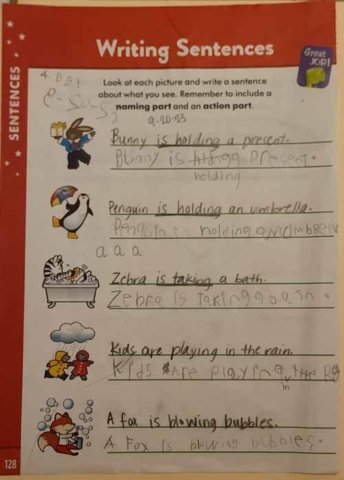 Writing Sentences
Great JOB!
SENTENCES
Look at each picture and write a sentence
about what you see. Remember to include a
naming part and an action part.
9-20-23
Bunny is holding a present.
Bunny is present.
holding
Penguin is holding an umbrella.
Penguin is holding an umbrella
a a a
Zebra is taking a bath.
Zebra is taking a bath.
Kids are playing in the rain.
Kids Are playing the
in
A fox is blowing bubbles.
A Fox is blowing bubbles.
128